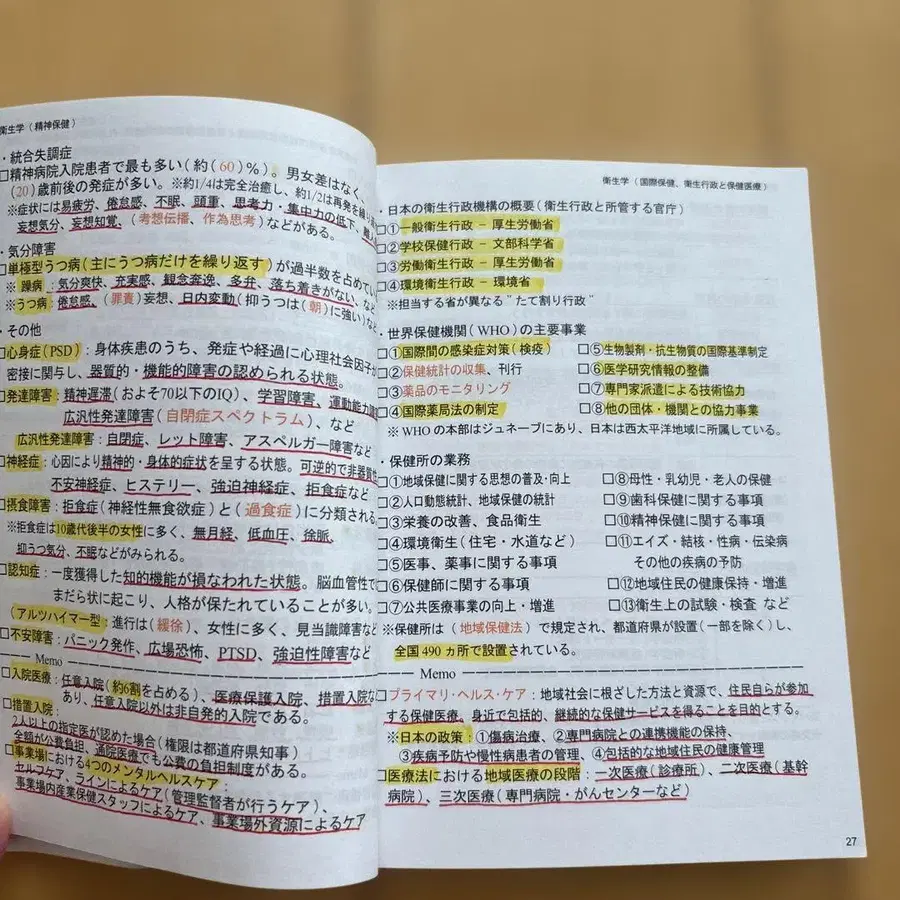 衛生学(精神保健)
・統合失調症
□精神病院入院患者で最も多い(約(60)%)。男女差はなく、
(20)歳前後の発症が多い。※約1/4は完全治癒し、約1/2は再発を繰り
※症状には易疲労、倦怠感、不眠、頭重、思考力・集中力の低下、
妄想気分、妄想知覚、(考想伝播、作為思考)などがある。
・気分障害
□単極型うつ病(主にうつ病だけを繰り返す)が過半数を占めてい
※躁病:気分爽快、充実感、観念奔逸、多弁、落ち着きがない、など
※うつ病:倦怠感、(罪責)妄想、日内変動(抑うつは(朝)に強い)など
・その他
□心身症(PSD):身体疾患のうち、発症や経過に心理社会因子が
密接に関与し、器質的・機能的障害の認められる状態。
□発達障害:精神遅滞(およそ70以下のIQ)、学習障害、運動能力
広汎性発達障害(自閉症スペクトラム)、など
広汎性発達障害:自閉症、レット障害、アスペルガー障害など
□神経症:心因により精神的・身体的症状を呈する状態。可逆的で非器質性
不安神経症、ヒステリー、強迫神経症、拒食症など
□摂食障害:拒食症(神経性無食欲症)と(過食症)に分類される。
※拒食症は10歳代後半の女性に多く、無月経、低血圧、徐脈、
抑うつ気分、不眠などがみられる。
□認知症:一度獲得した知的機能が損なわれた状態。脳血管性で
まだら状に起こり、人格が保たれていることが多い。
(アルツハイマー型:進行は(緩徐)、女性に多く、見当識障害など
□不安障害:パニック発作、広場恐怖、PTSD、強迫性障害など
Memo
□入院医療:任意入院(約6割を占める)、医療保護入院、措置入院な
あり、任意入院以外は非自発的入院である。
□措置入院:
2人以上の指定医が認めた場合(権限は都道府県知事)
全額が公費負担、通院医療でも公費の負担制度がある。
□事業場における4つのメンタルヘルスケア:
セルフケア、ラインによるケア(管理監督者が行うケア)、
事業場内産業保健スタッフによるケア、事業場外資源によるケア
衛生学(国際保健、衛生行政と保健医療)
・日本の衛生行政機構の概要(衛生行政と所管する官庁)
□①一般衛生行政 − 厚生労働省
□②学校保健行政 − 文部科学省
□③労働衛生行政 − 厚生労働省
□④環境衛生行政 − 環境省
※担当する省が異なる"たて割り行政"
・世界保健機関(WHO)の主要事業
□①国際間の感染症対策(検疫)
□②保健統計の収集、刊行
□③薬品のモニタリング
□④国際薬局法の制定
□⑤生物製剤・抗生物質の国際基準制定
□⑥医学研究情報の整備
□⑦専門家派遣による技術協力
□⑧他の団体・機関との協力事業
※WHOの本部はジュネーブにあり、日本は西太平洋地域に所属している。
・保健所の業務
□①地域保健に関する思想の普及・向上
□②人口動態統計、地域保健の統計
□③栄養の改善、食品衛生
□④環境衛生(住宅・水道など)
□⑤医事、薬事に関する事項
□⑥保健師に関する事項
□⑦公共医療事業の向上・増進
□⑧母性・乳幼児・老人の保健
□⑨歯科保健に関する事項
□⑩精神保健に関する事項
□⑪エイズ・結核・性病・伝染病
その他の疾病の予防
□⑫地域住民の健康保持・増進
□⑬衛生上の試験・検査 など
※保健所は(地域保健法)で規定され、都道府県が設置(一部を除く)し、
全国490ヵ所で設置されている。
Memo
□プライマリ・ヘルス・ケア:地域社会に根ざした方法と資源で、住民自らが参加
する保健医療。身近で包括的、継続的な保健サービスを得ることを目的とする。
※日本の政策:①傷病治療、②専門病院との連携機能の保持、
③疾病予防や慢性病患者の管理、④包括的な地域住民の健康管理
□医療法における地域医療の段階:一次医療(診療所)、二次医療(基幹
病院)、三次医療(専門病院・がんセンターなど)
27